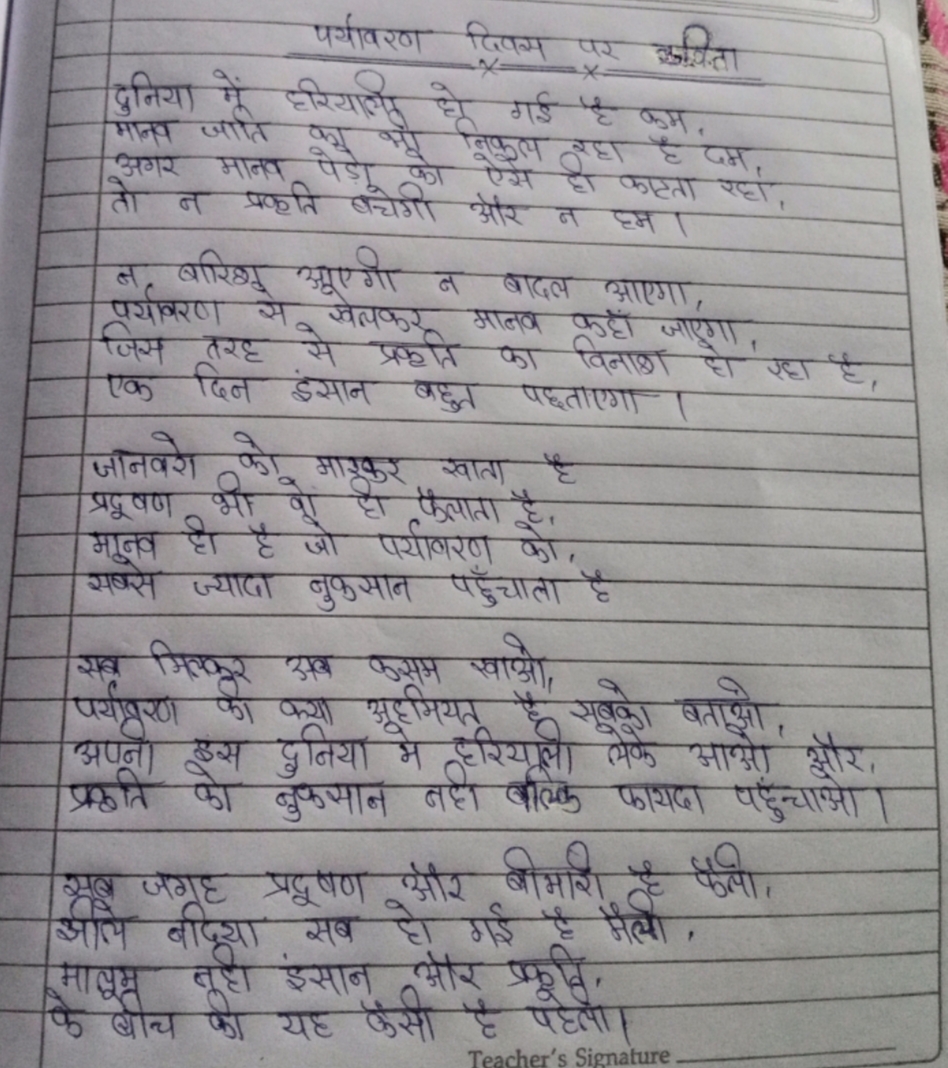 पर्यावरण दिवस पर कविता
दुनिया में हरियाली हो गई है कम,
मानव जाति का भी निकल रहा है दम,
अगर मानव पेड़ो को ऐसे ही काटता रहा,
तो न प्रकृति बचेगी और न हम।
न बारिश आएगी न बादल आएगा,
पर्यावरण से खेलकर मानव कहाँ जाएगा,
जिस तरह से प्रकृति का विनाश हो रहा है,
एक दिन इंसान बहुत पछताएगा।
जानवरो को मारकर खाता है
प्रदूषण भी वो ही फैलाता है,
मानव ही है जो पर्यावरण को,
सबसे ज्यादा नुकसान पहुँचाता है
सब मिलकर अब कसम खाओ,
पर्यावरण की क्या अहमियत है सबको बताओ,
अपनी इस दुनिया मे हरियाली लेके आओ और,
प्रकृति को नुकसान नही बल्कि फायदा पहुँचाओ।
सब जगह प्रदूषण और बीमारी है फैली,
झीले नदिया सब हो गई है मैली,
मालूम नही इंसान और प्रकृति,
के बीच की यह कैसी है पहेली।
Teacher's Signature